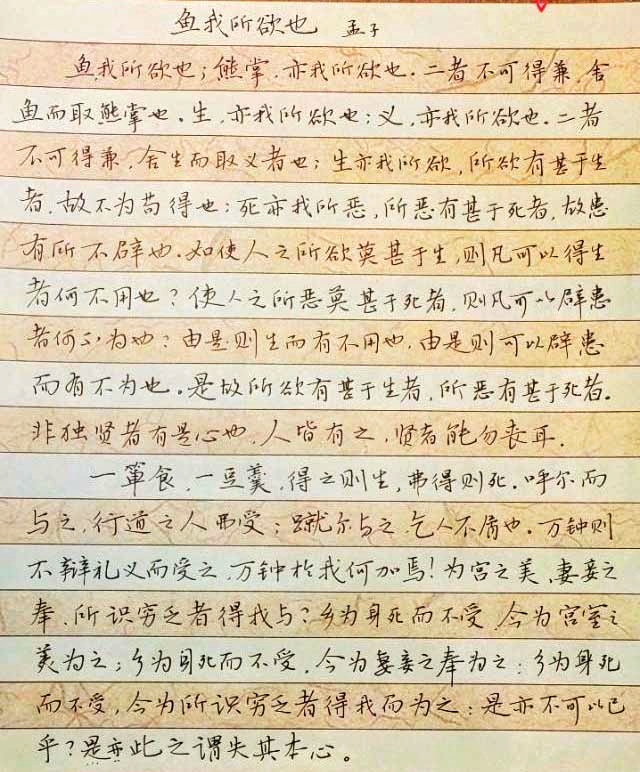 鱼我所欲也 孟子
鱼,我所欲也;熊掌,亦我所欲也.二者不可得兼,舍
鱼而取熊掌也.生,亦我所欲也;义,亦我所欲也.二者
不可得兼,舍生而取义者也;生亦我所欲,所欲有甚于生
者,故不为苟得也;死亦我所恶,所恶有甚于死者,故患
有所不辟也.如使人之所欲莫甚于生,则凡可以得生
者何不用也?使人之所恶莫甚于死者,则凡可以辟患
者何不为也?由是则生而有不用也,由是则可以辟患
而有不为也.是故所欲有甚于生者,所恶有甚于死者.
非独贤者有是心也,人皆有之,贤者能勿丧耳.
一箪食,一豆羹,得之则生,弗得则死.呼尔而
与之,行道之人弗受;蹴尔与之,乞人不屑也.万钟则
不辩礼义而受之,万钟於我何加焉!为宫之美,妻妾之
奉,所识穷乏者得我与?乡为身死而不受,今为宫室之
美为之;乡为身死而不受,今为妻妾之奉为之;乡为身死
而不受,今为所识穷乏者得我而为之:是亦不可以已
乎?是亦此之谓失其本心。